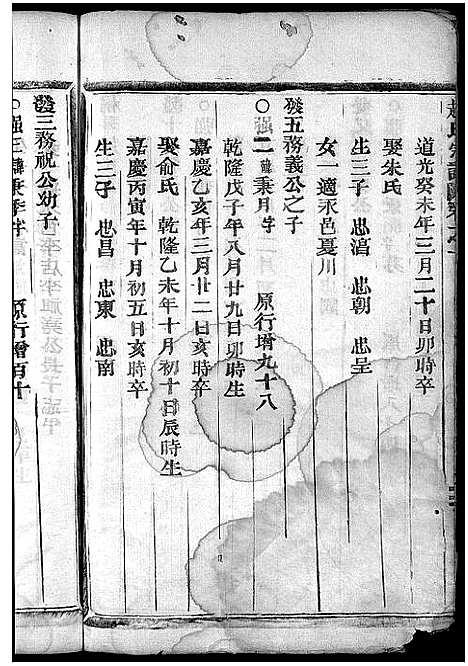 道光癸未年三月二十日卯時卒
娶朱氏
生三子 忠滈 忠朝 忠呈
女一適汞邑夏川
發五務義公之子
○强二 諱秉月字 原行增九十八
乾隆戊子年八月廿九日卯時生
嘉慶乙亥年三月廿二日亥時卒
娶俞氏 乾隆乙未年十月初十日辰時生
嘉慶丙寅年十月初五日亥時卒
生三子 忠昌 忠東 忠南
發三務祝公幼子
○强三 諱秉李字 原行增百十